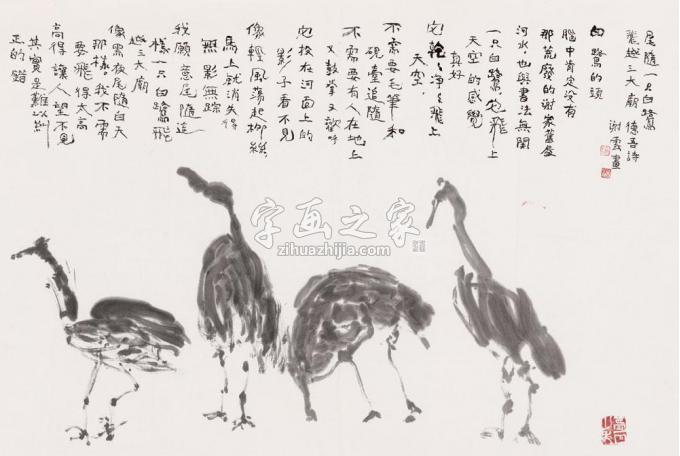 尾隨一只白鷺
飛越三大廟 德吾詩
謝雲畫
白鷺的頭
腦中肯定沒有
那荒廢的謝家舊
河水，也與書法無関
一只白鷺，它飛上
天空的感覺
真好
它乾乾淨淨飛上
天空，
不需要毛筆和
硯臺追隨
不需要有人在地上
又鼓掌又歡呼
它投在河面上的
影子看不見
像輕風蕩起柳絲
馬上就消失得
無影無踪
我願意尾隨這
樣一只白鷺飛
越三大廟
像黑夜尾隨白天
那樣。我不需
要飛得太高
高得讓人望不見
其實是難以糾
正的錯
字画之家
zihuazhijia.com